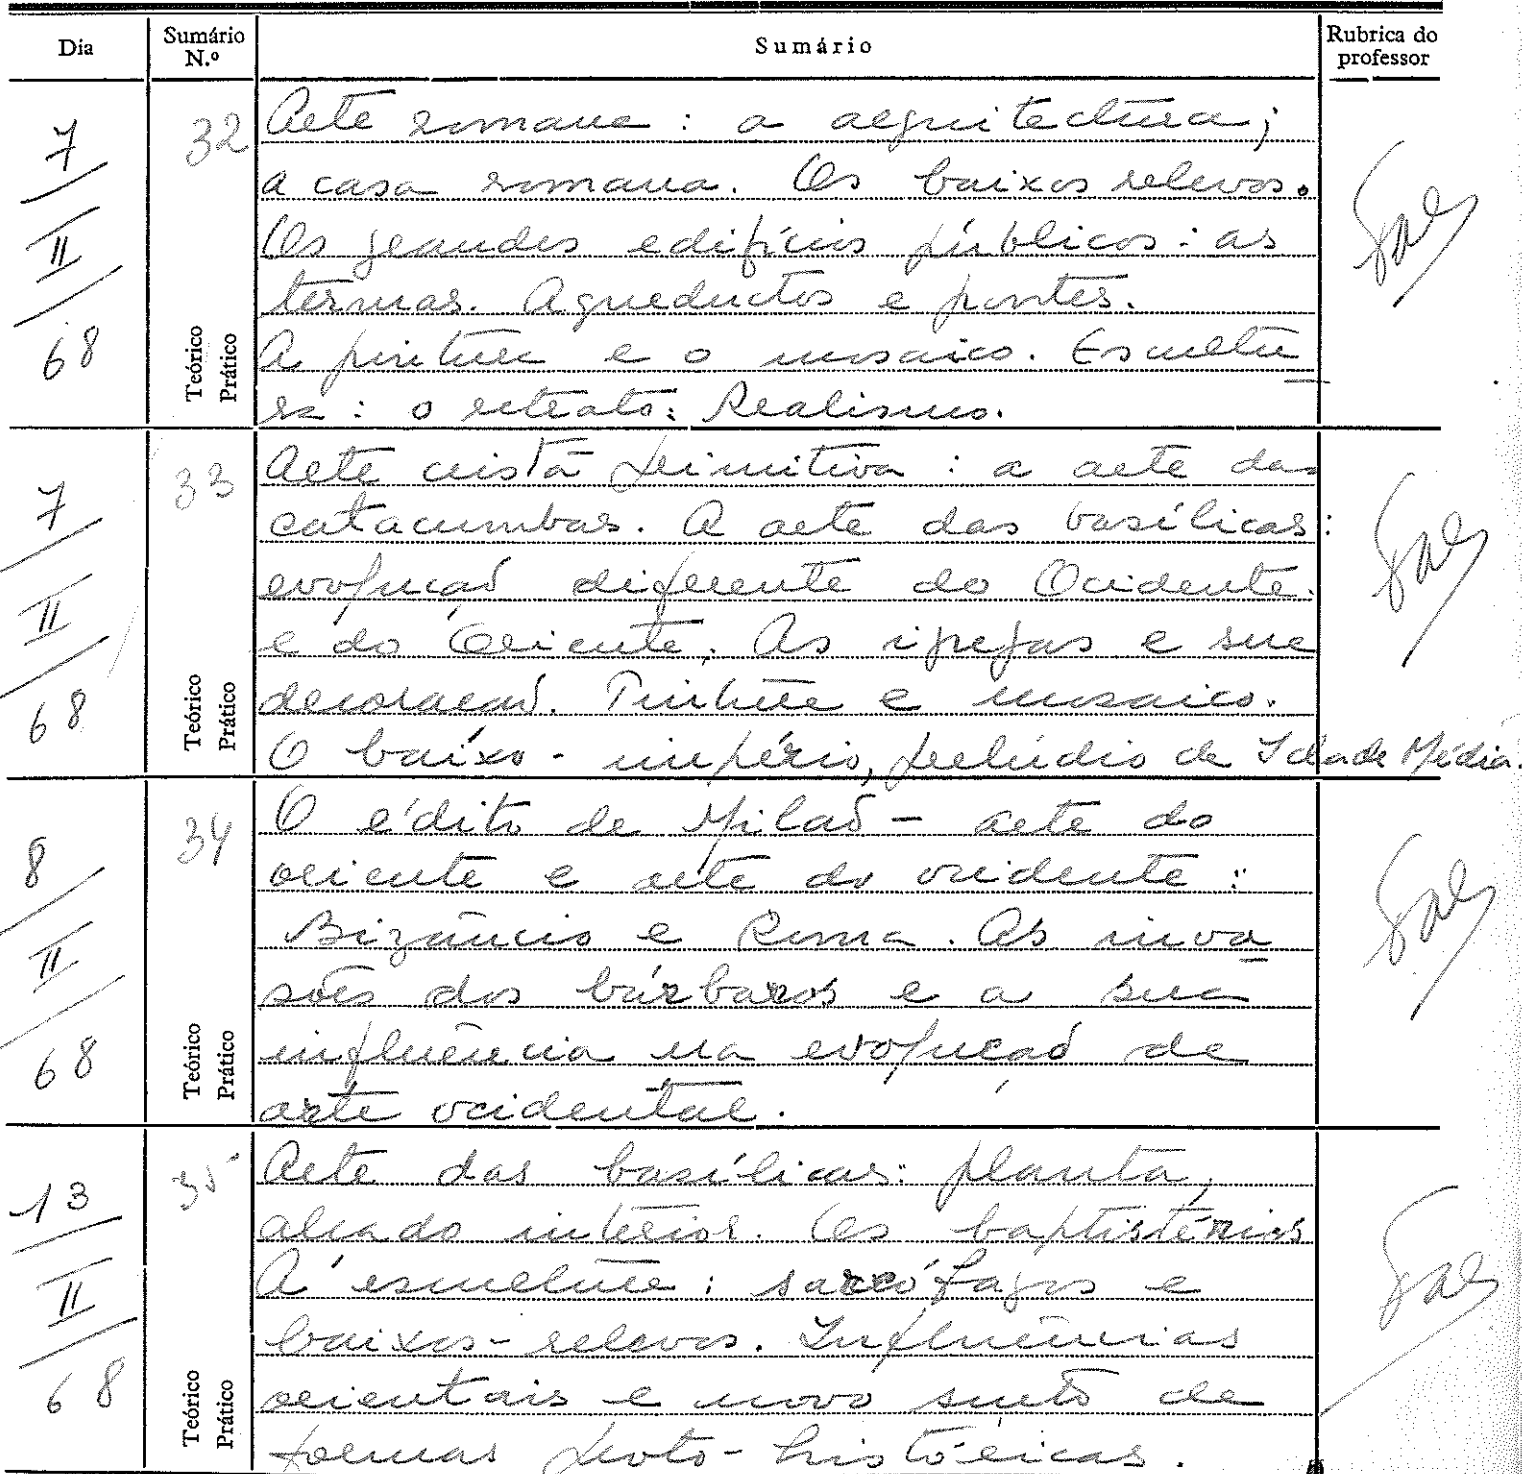 Dia Sumário N.º Sumário Rubrica do professor
7/II/68 32 Teórico Prático
Arte romana : a arquitectura;
a casa romana. Os baixos relevos.
Os grandes edifícios públicos : as
termas. Aqueductos e pontes.
A pintura e o mosaico. Escultu
ra : o retrato: Realismo.
7/II/68 33 Teórico Prático
Arte cristã primitiva : a arte das
catacumbas. A arte das basílicas :
evolução diferente do Ocidente
e do Oriente. As igrejas e sua
decoração. Pintura e mosaico.
O baixo-império, prelúdio da Idade Média.
8/II/68 34 Teórico Prático
O édito de Milão - arte do
oriente e arte do ocidente :
Bizâncio e Roma. As inva
sões dos bárbaros e a sua
influência na evolução da
arte ocidental.
13/II/68 35 Teórico Prático
Arte das basílicas: planta,
alçado interior. Os baptistérios
A escultura : sarcófagos e
baixos-relevos. Influências
orientais e novo surto de
formas proto-históricas.